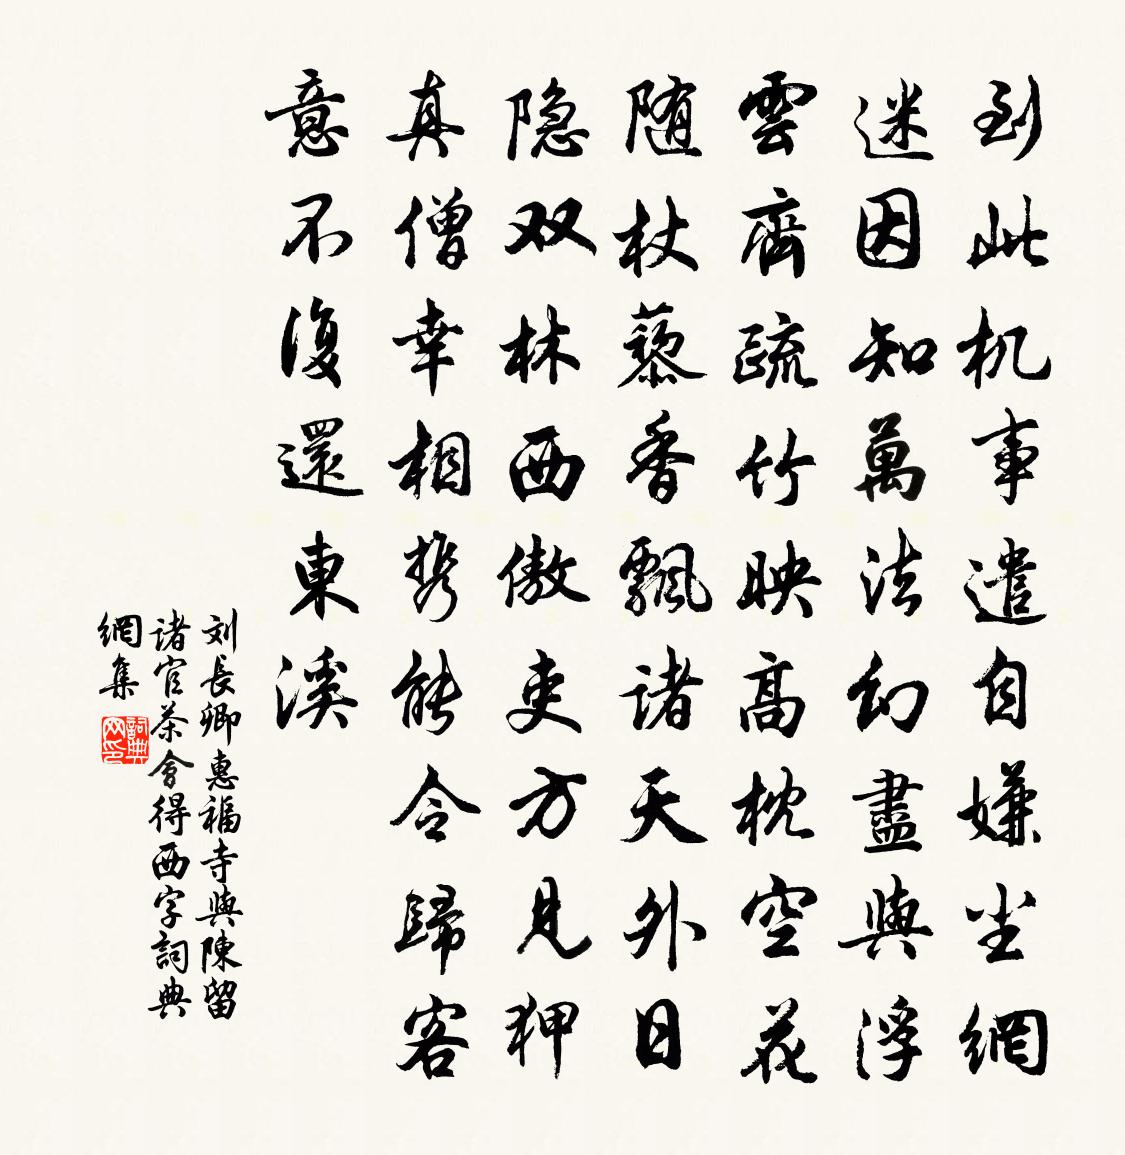 到此机事遣自嫌尘網
迷因知萬法幻盡與浮
雲齊疏竹映高枕空花
随杖藜香飄諸天外日
隐双林西傲吏方見狎
真僧幸相携能令歸客
意不復還東溪
刘長卿惠福寺與陳留
諸官茶會得西字詞典
網集
詞典网印